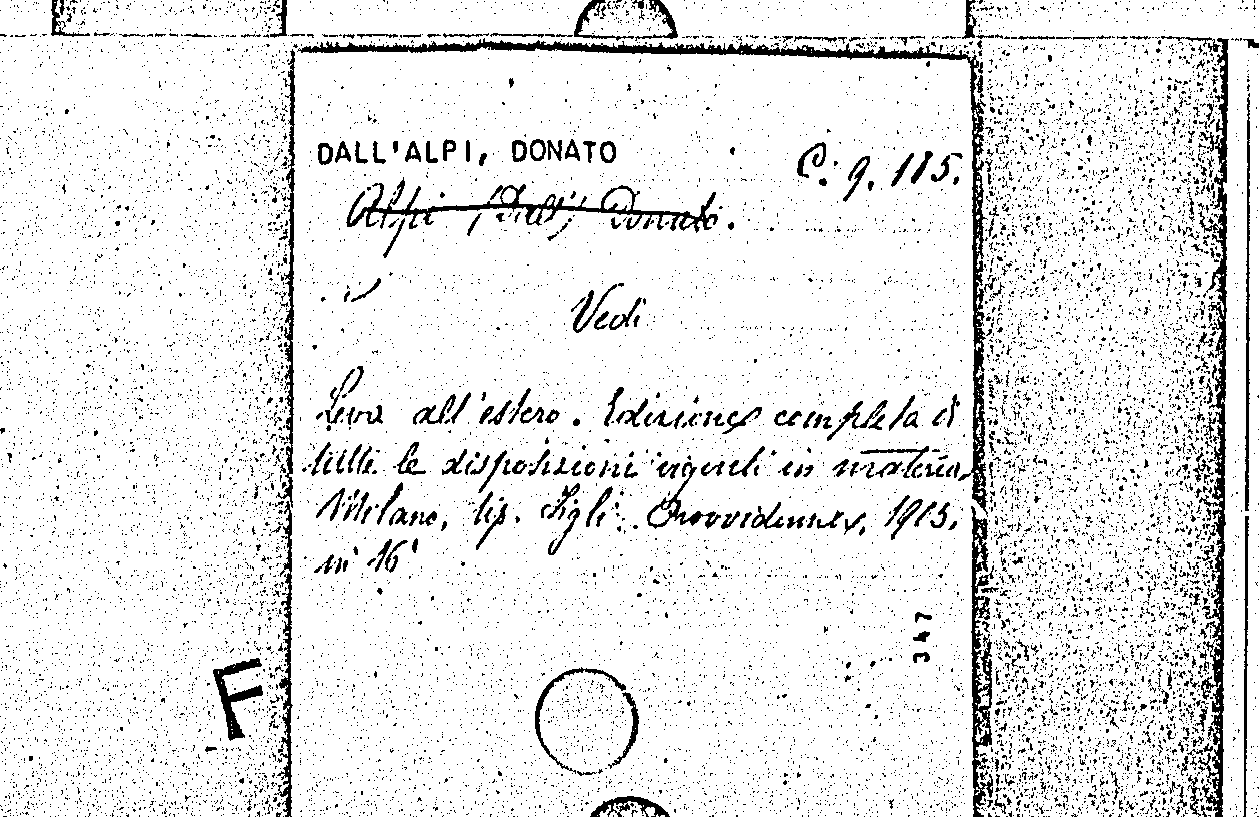 DALL'ALPI, DONATO
C. 9. 185.
Alpi (Dall') Donato.
Vedi
Leva all'estero. Edizione completa di
tutte le disposizioni vigenti in materia.
Milano, tip. Figli Provvidenza, 1913.
in 16°
347
F